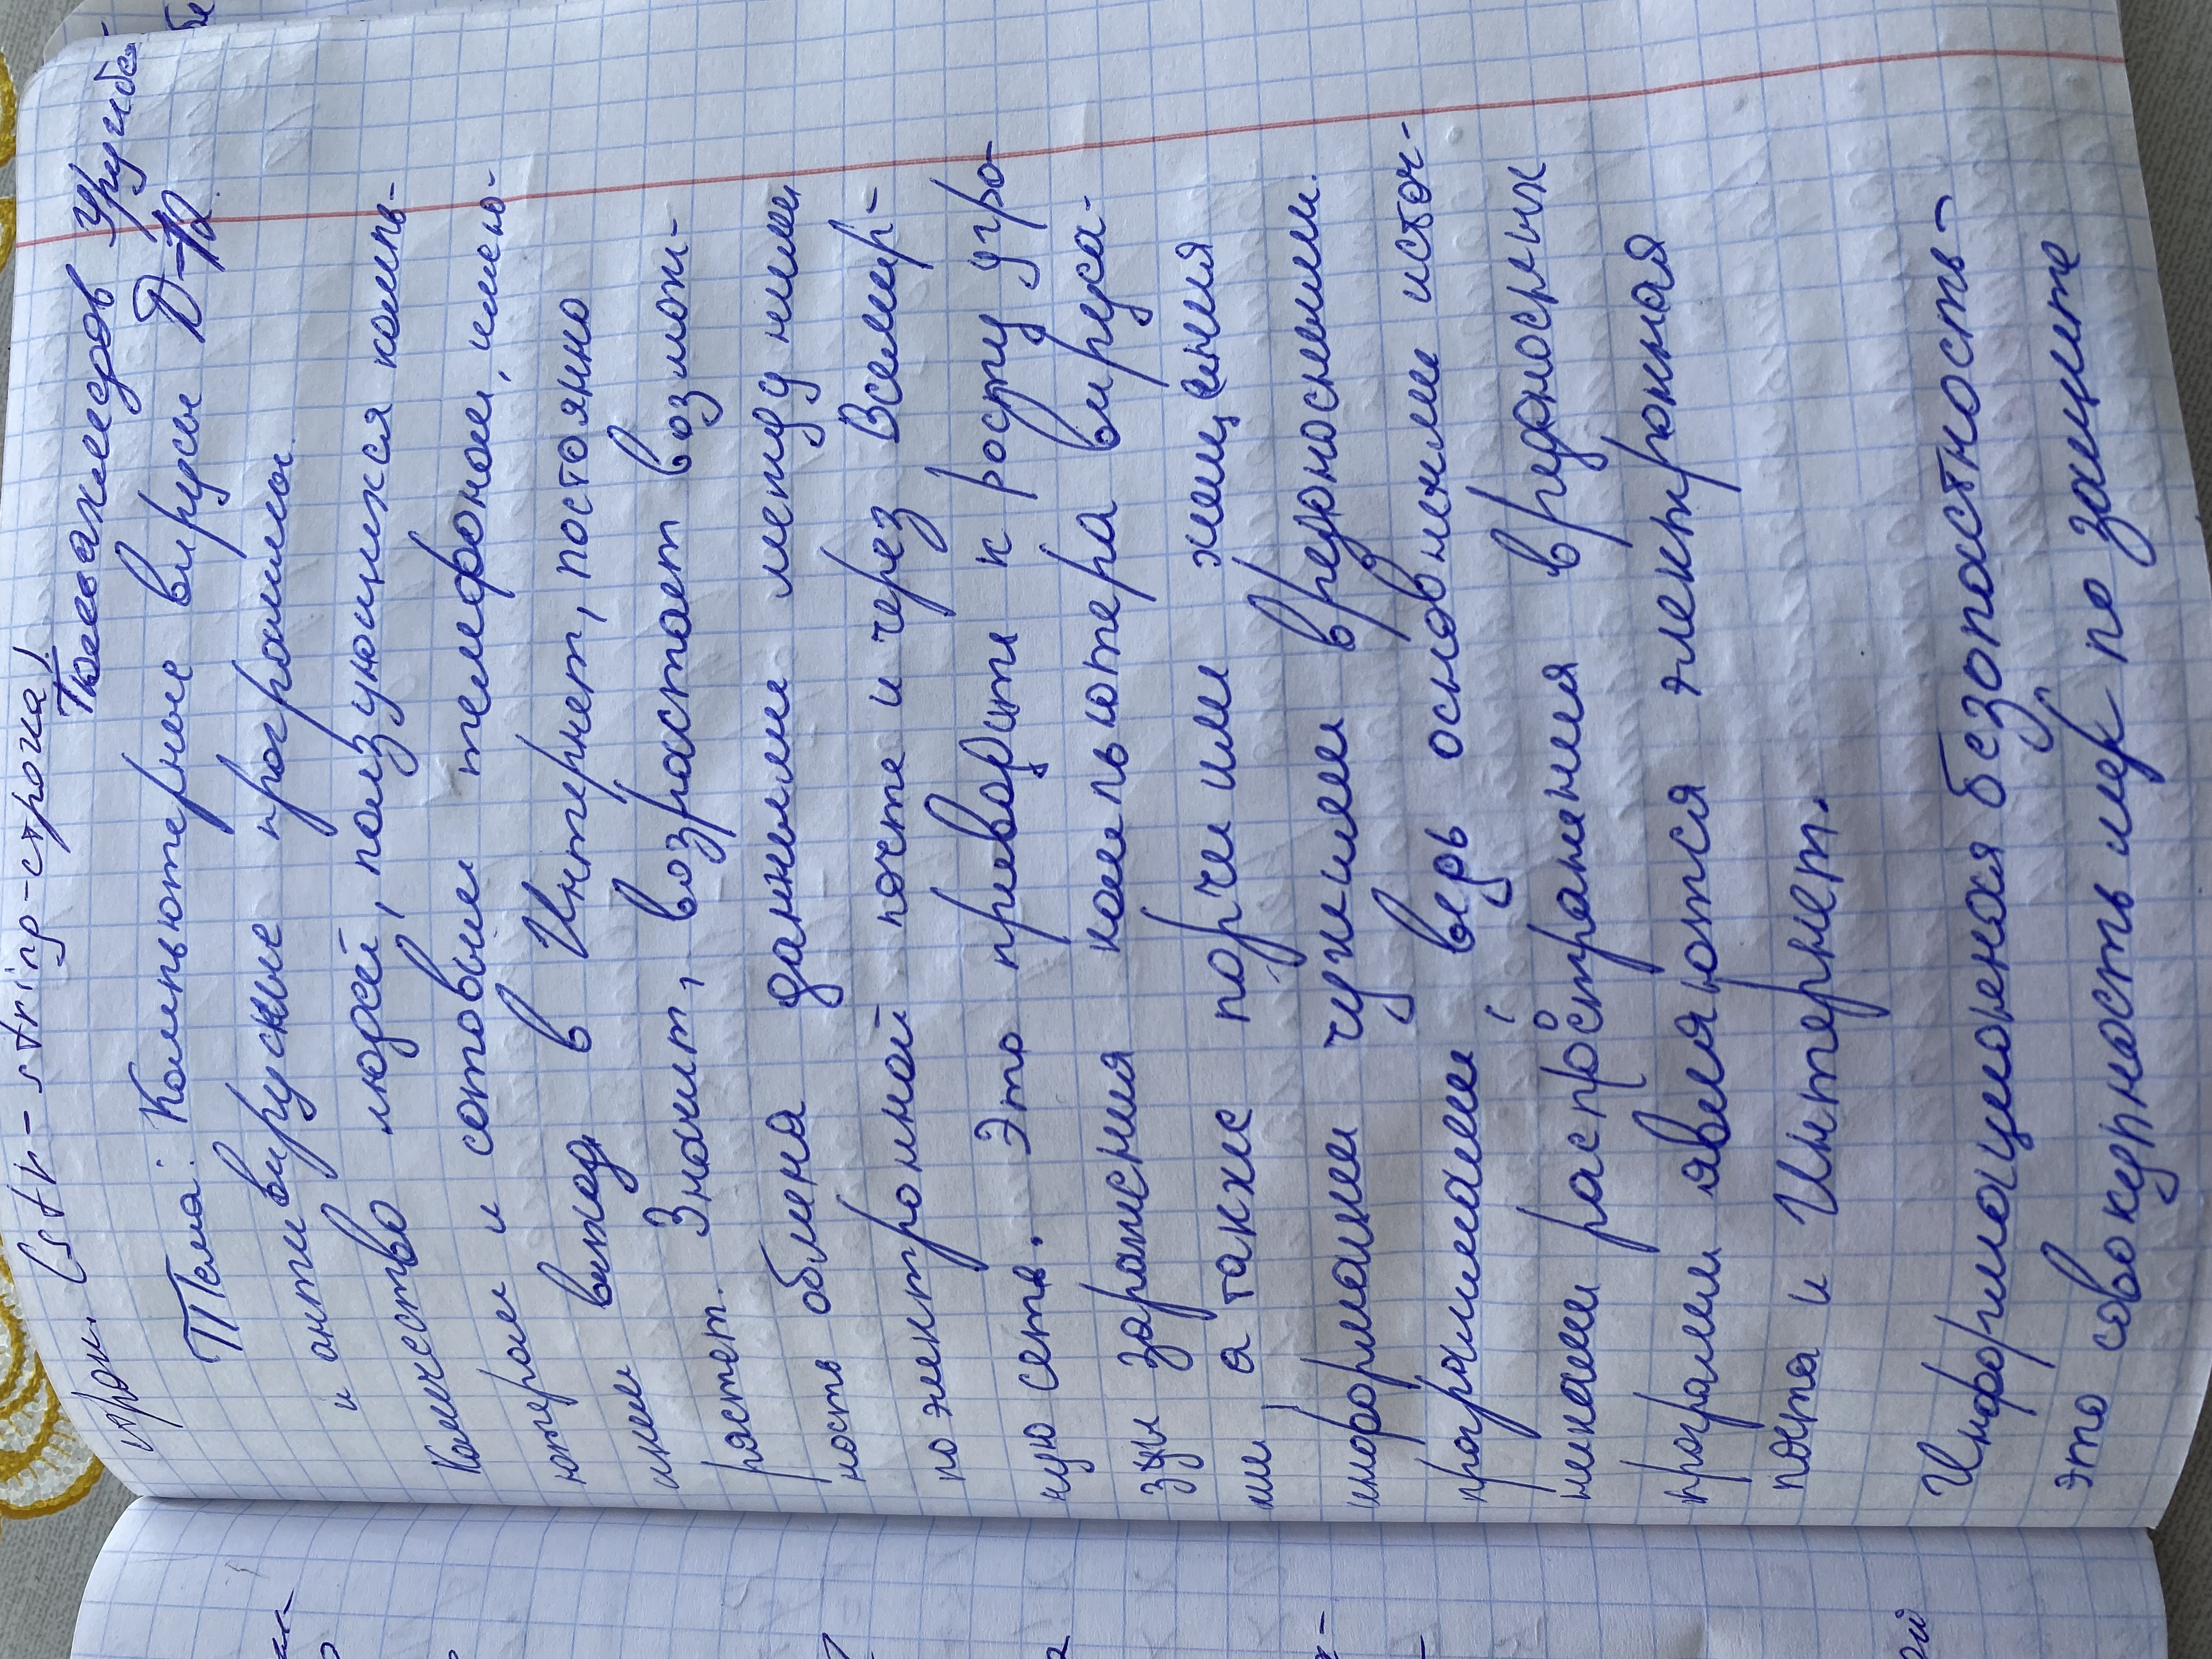 (str - string - строка)
Тема: Компьютерные вирусы Д-12
и антивирусные программы.
Количество людей, пользующихся компь-
ютером и сотовым телефоном, имею-
щим выход в Интернет, постоянно
растет. Значит, возрастает возмож-
ность обмена данными между ними
по электронной почте и через Всемир-
ную сеть. Это приводит к росту угро-
зы заражения компьютера вируса-
ми, а также порчи или хищения
информации чужими вредоносными
программами, ведь основными источ-
никами распространения вредоносных
программ являются электронная
почта и Интернет.
Информационная безопастность -
это совокупность мер по защите